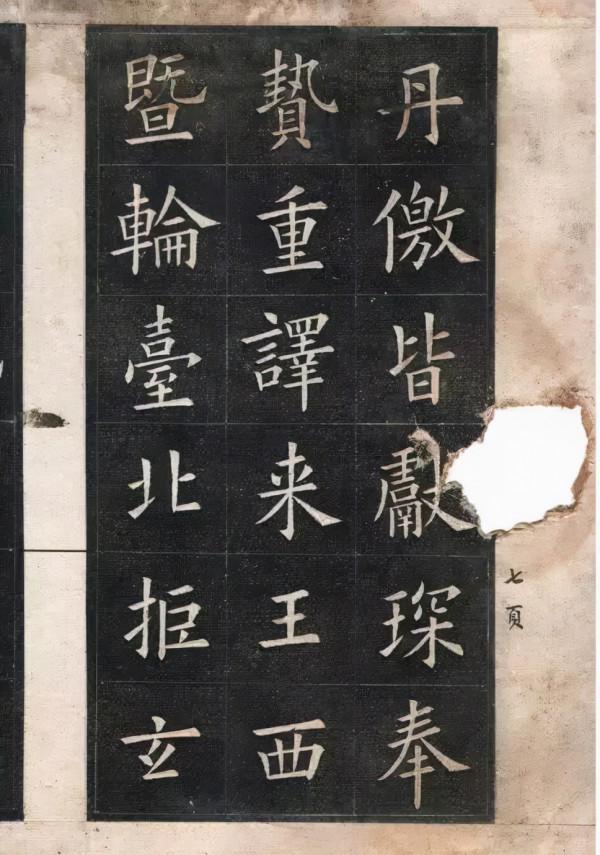 丹儌皆獻琛奉
贄重譯来王西
暨輪臺北拒玄
七頁